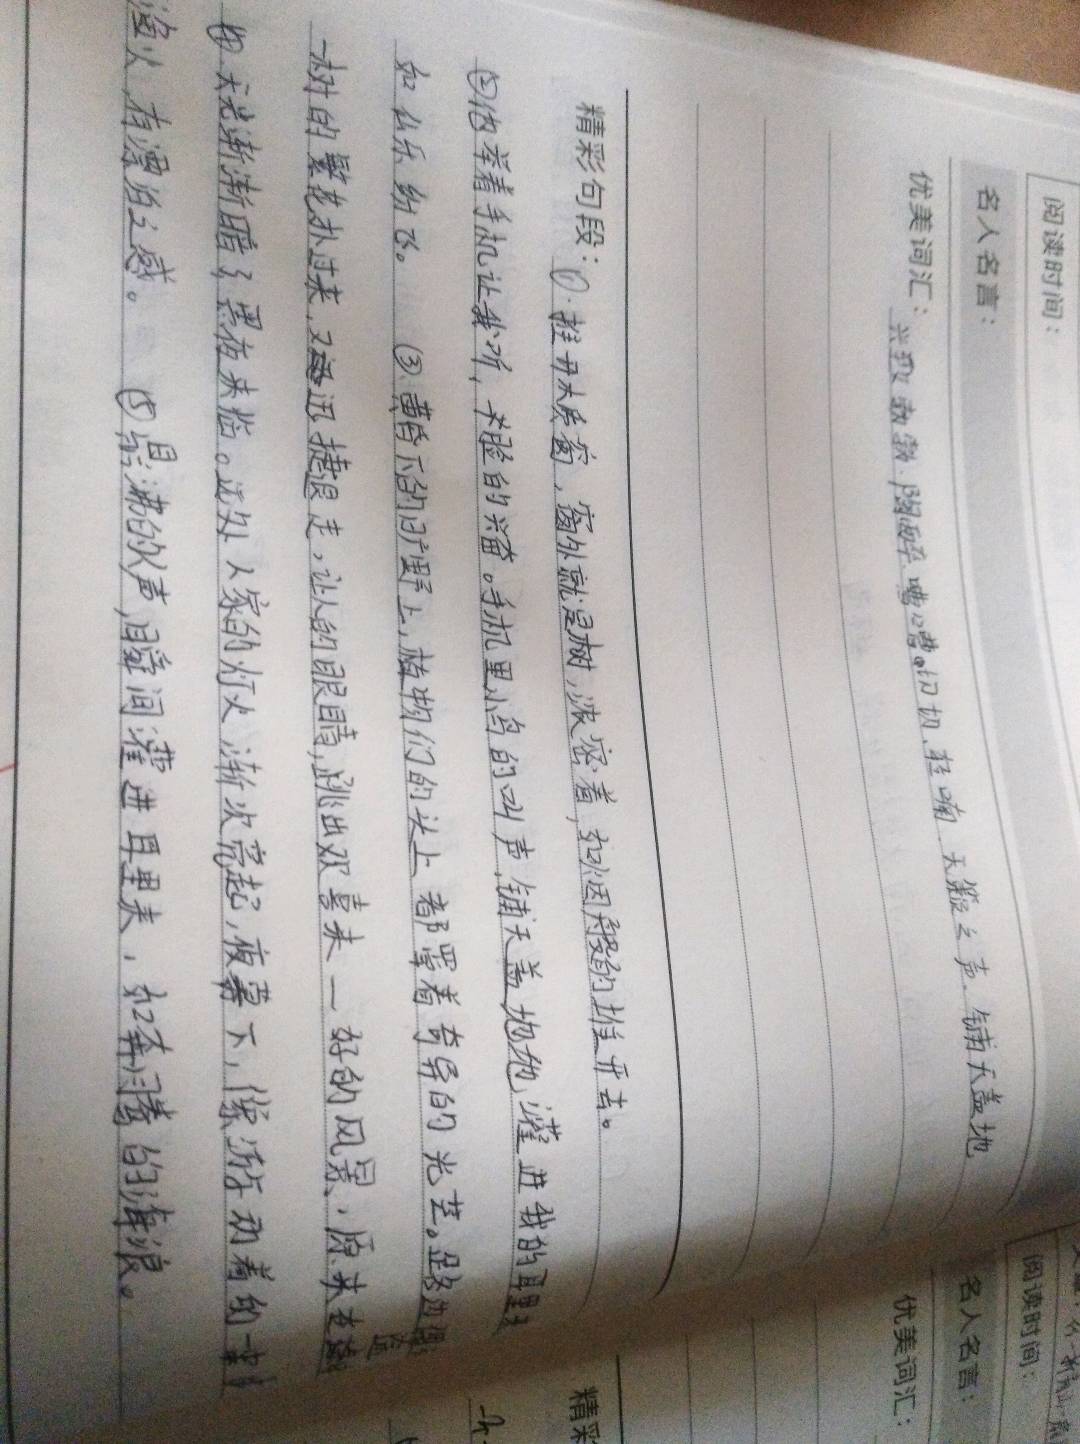 阅读时间：
名人名言：
优美词汇：兴致勃勃 陶醉 嘈嘈切切 轻喃 天籁之声 铺天盖地
精彩句段：①推开木质窗，窗外就是树，浓密着，如烟般的堆开去。
②他举着手机让我听，千脸的兴奋。手机里小鸟的叫声，铺天盖地地，灌进我的耳里
如仙乐纷飞。 ③黄昏下的旷野上，植物们的头上都罩着奇异的光芒。路边
一树的繁花扑过来，又迅捷退走，让人的眼睛，跳出欢喜来—好的风景，原来
④天光渐渐暗了，黑夜来临。远处人家的灯火渐次亮起，夜幕下，像浮动着的一
渔火，有漂泊之感。 ⑤鼎沸的人声，瞬间灌进耳里来，如奔腾的海浪。
阅读时间：
名人名言：
优美词汇：
精彩